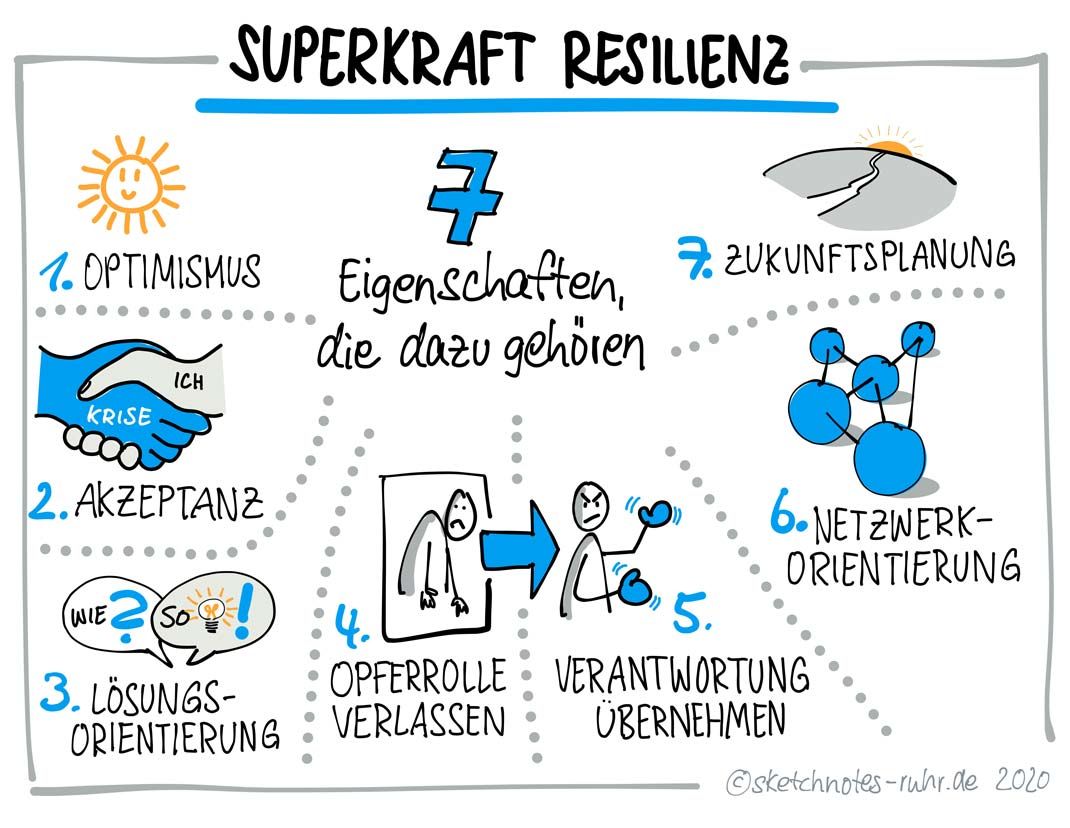 SUPERKRAFT RESILIENZ
7
Eigenschaften,
die dazu gehören
1. OPTIMISMUS
ICH
KRISE
2. AKZEPTANZ
WIE ?
SO !
3. LÖSUNGS-
ORIENTIERUNG
4.
OPFERROLLE
VERLASSEN
5.
VERANTWORTUNG
ÜBERNEHMEN
6. NETZWERK-
ORIENTIERUNG
7. ZUKUNFTSPLANUNG
©sketchnotes-ruhr.de 2020